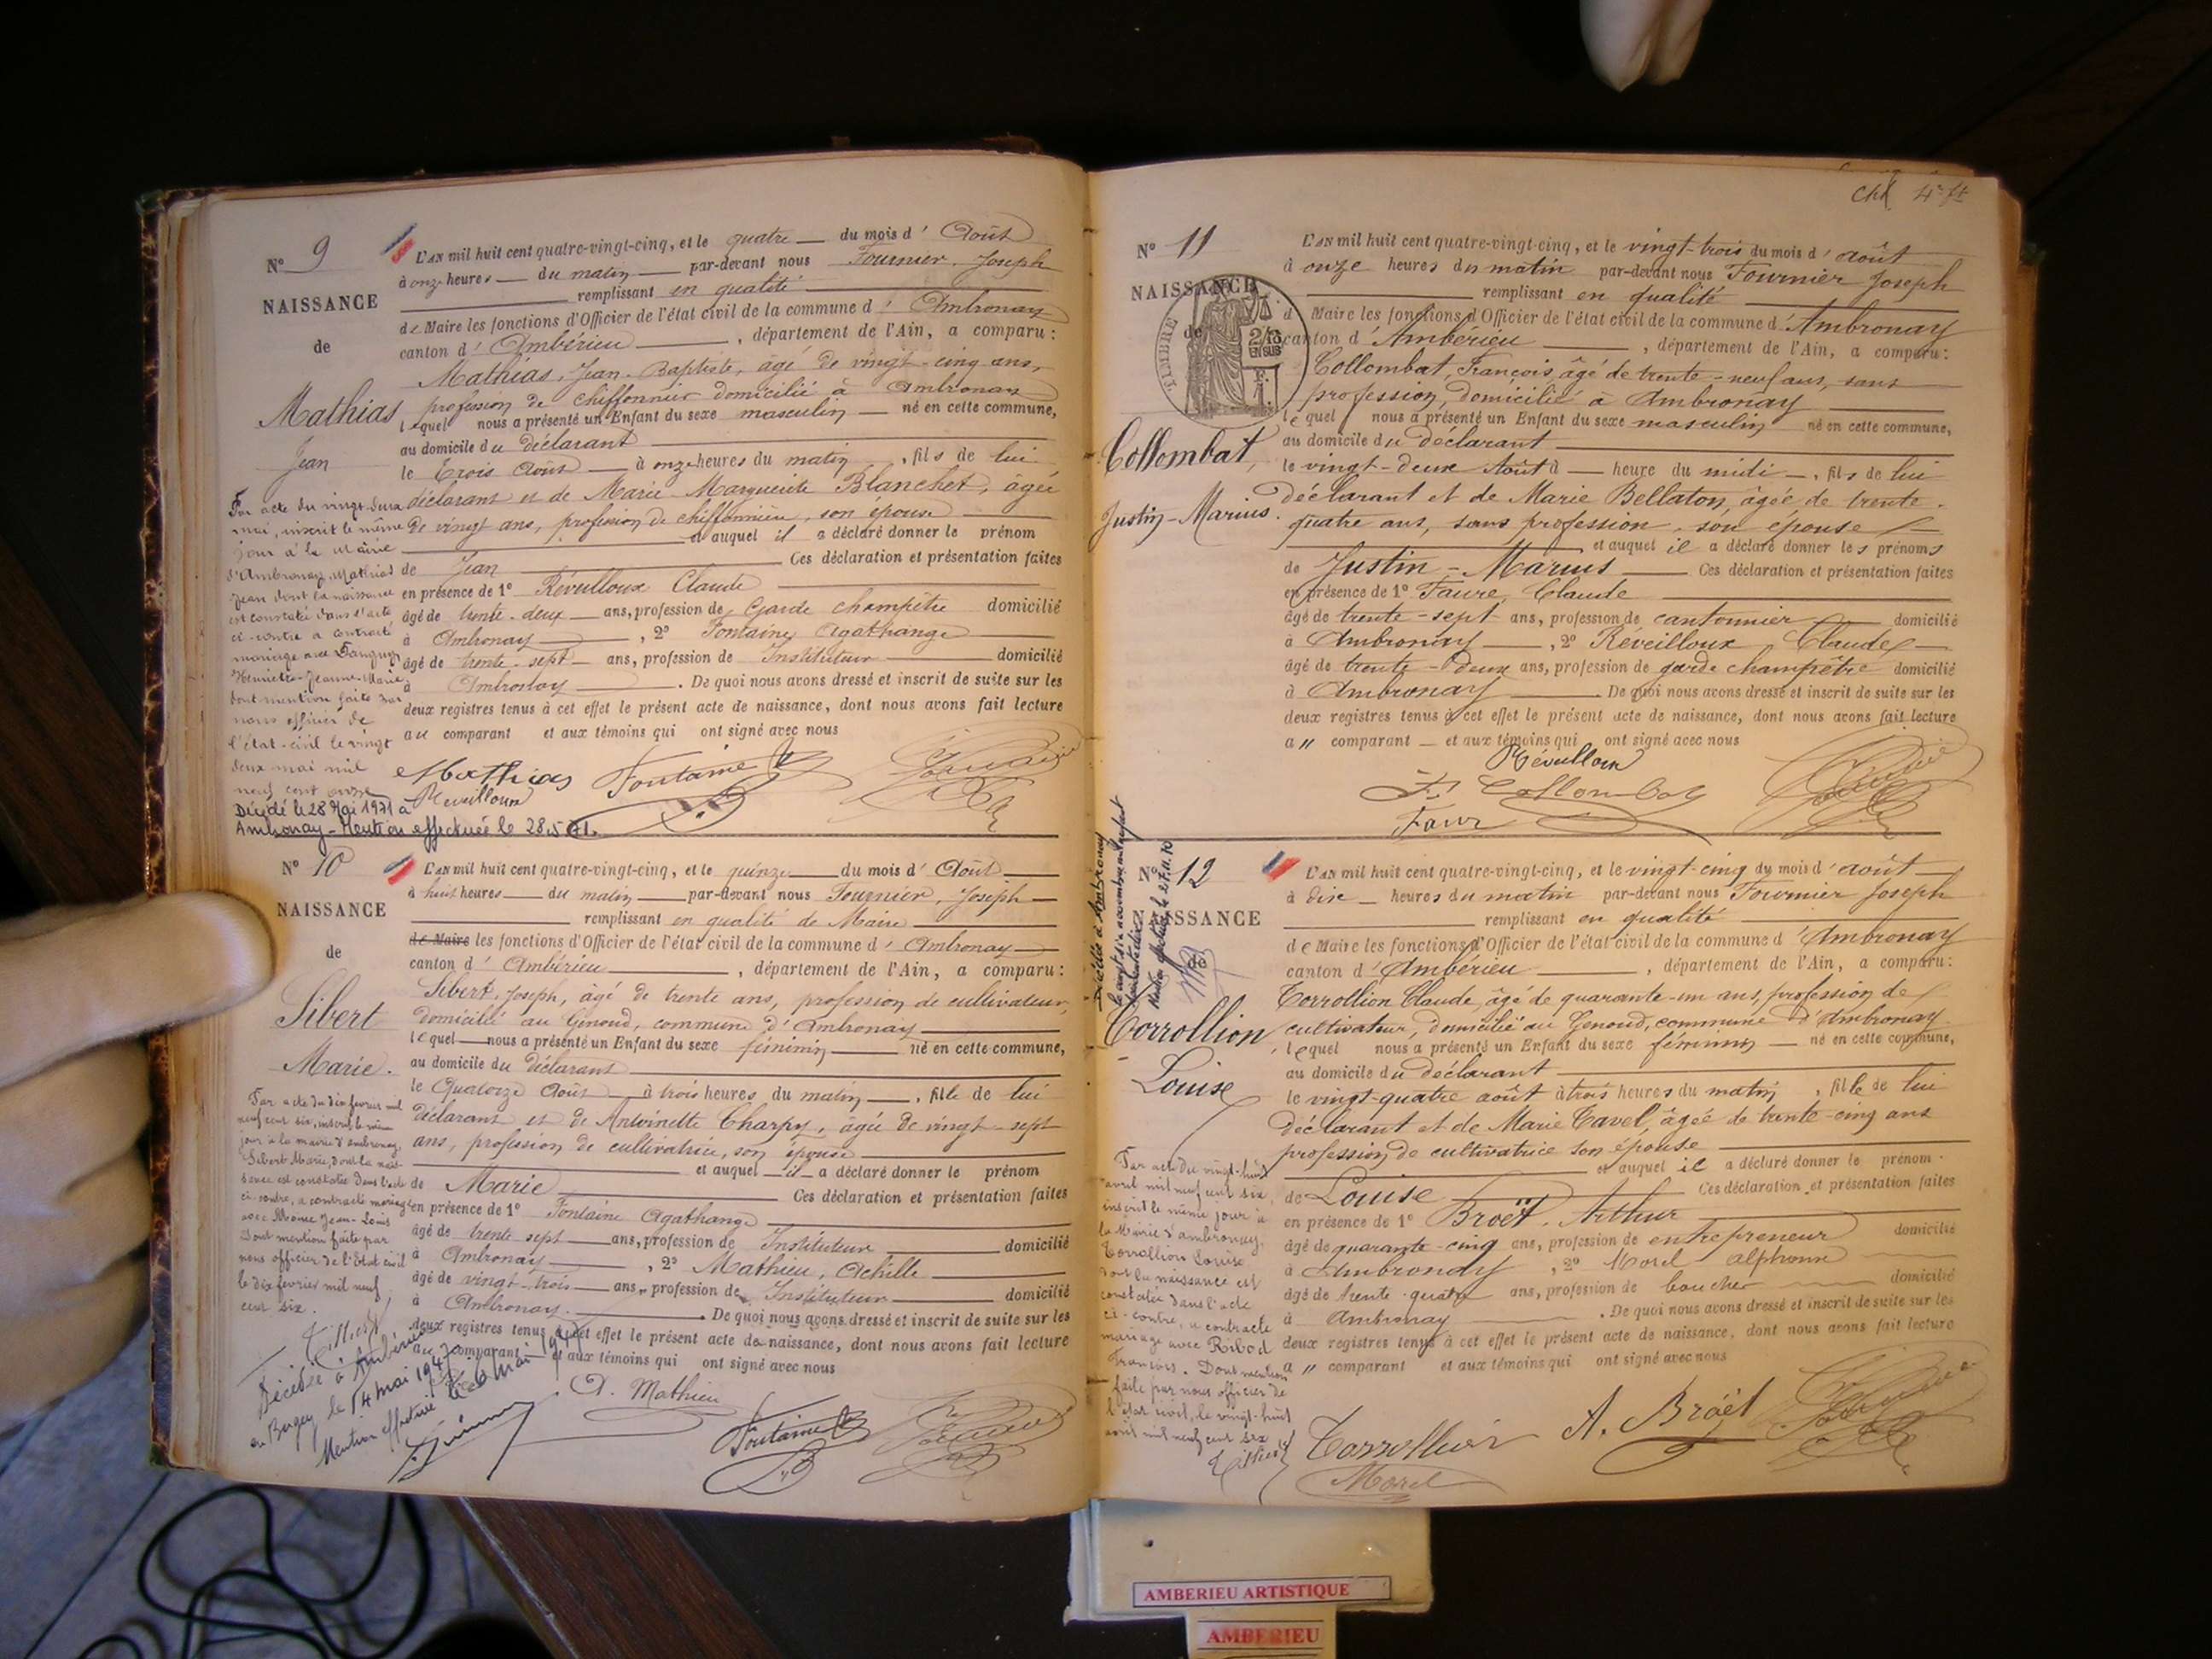 N° 9
NAISSANCE
de
Mathias
Jean
L'AN mil huit cent quatre-vingt-cinq, et le quatre du mois d' Août
à onze heures du matin par-devant nous Fournier, Joseph
remplissant en qualité
de Maire les fonctions d'Officier de l'état civil de la commune d' Ambronay
canton d' Ambérieu, département de l'Ain, a comparu:
Mathias, Jean-Baptiste, âgé de vingt-cinq ans,
profession de chiffonnier domicilié à Ambronay
lequel nous a présenté un Enfant du sexe masculin né en cette commune,
au domicile du déclarant
le trois Août à onze heures du matin, fils de lui
déclarant et de Marie-Marguerite Blanchet, âgée
de vingt ans, profession de chiffonnière, son épouse
et auquel il a déclaré donner le prénom
de Jean Ces déclaration et présentation faites
en présence de 1° Réveilloux Claude
âgé de trente-deux ans, profession de Garde champêtre domicilié
à Ambronay, 2° Fontaine Agathange
âgé de trente-sept ans, profession de Instituteur domicilié
à Ambronay. De quoi nous avons dressé et inscrit de suite sur les
deux registres tenus à cet effet le présent acte de naissance, dont nous avons fait lecture
au comparant et aux témoins qui ont signé avec nous
Mathias Fontaine
Réveilloux
Par acte du vingt-deux
mai, inscrit le même
jour à la Mairie
d'Ambronay, Mathias
Jean dont la naissance
est constatée dans l'acte
ci-contre a contracté
mariage avec
Henriette-Jeanne-Marie
dont mention faite par
nous officier de
l'état-civil le vingt
deux mai mil
neuf cent onze
Décédé le 28 Mai 1971 à
Ambronay - Mention effectuée le 28.5.71.
N° 10
NAISSANCE
de
Sibert
Marie.
L'AN mil huit cent quatre-vingt-cinq, et le quinze du mois d' Août
à huit heures du matin par-devant nous Fournier, Joseph
remplissant en qualité de Maire
de Maire les fonctions d'Officier de l'état civil de la commune d' Ambronay
canton d' Ambérieu, département de l'Ain, a comparu:
Sibert, Joseph, âgé de trente ans, profession de cultivateur,
domicilié au Genoud, commune d'Ambronay
lequel nous a présenté un Enfant du sexe féminin né en cette commune,
au domicile du déclarant
le Quatorze Août à trois heures du matin, fille de lui
déclarant et de Antoinette Charpy, âgée de vingt-sept
ans, profession de cultivatrice, son épouse
et auquel il a déclaré donner le prénom
de Marie Ces déclaration et présentation faites
en présence de 1° Fontaine Agathange
âgé de trente sept ans, profession de Instituteur domicilié
à Ambronay, 2° Mathieu, Achille
âgé de vingt-trois ans, profession de Instituteur domicilié
à Ambronay. De quoi nous avons dressé et inscrit de suite sur les
deux registres tenus à cet effet le présent acte de naissance, dont nous avons fait lecture
au comparant et aux témoins qui ont signé avec nous
A. Mathieu
Fontaine
Par acte du dix février mil
neuf cent six, inscrit le même
jour à la mairie d'Ambronay,
Sibert Marie, dont la nais-
sance est constatée dans l'acte
ci-contre, a contracté mariage
avec Jean-Louis
Dont mention faite par
nous officier de l'Etat civil
le dix février mil neuf
cent six.
Décédée à Ambérieu
en Bugey le 14 mai 194
Mention effectuée le mai 194
Chl 4e ft
N° 11
NAISSANCE
de
TIMBRE
2/10 EN SUS
Collombat,
Justin-Marius.
L'AN mil huit cent quatre-vingt-cinq, et le vingt-trois du mois d' août
à onze heures du matin par-devant nous Fournier Joseph
remplissant en qualité
d Maire les fonctions d'Officier de l'état civil de la commune d' Ambronay
canton d' Ambérieu, département de l'Ain, a comparu:
Collombat, François âgé de trente-neuf ans, sans
profession, domicilié à Ambronay
lequel nous a présenté un Enfant du sexe masculin né en cette commune,
au domicile du déclarant
le vingt-deux Août à heure du midi, fils de lui
déclarant et de Marie Bellaton, âgée de trente-
quatre ans, sans profession, son épouse
et auquel il a déclaré donner les prénoms
de Justin-Marius Ces déclaration et présentation faites
en présence de 1° Faure, Claude
âgé de trente-sept ans, profession de cantonnier domicilié
à Ambronay, 2° Réveilloux Claude
âgé de trente-deux ans, profession de garde champêtre domicilié
à Ambronay. De quoi nous avons dressé et inscrit de suite sur les
deux registres tenus à cet effet le présent acte de naissance, dont nous avons fait lecture
a" comparant et aux témoins qui ont signé avec nous
Réveilloux
Collombat
Faure
N° 12
NAISSANCE
de
Corrollion
Louise
L'AN mil huit cent quatre-vingt-cinq, et le vingt-cinq du mois d' août
à dix heures du matin par-devant nous Fournier Joseph
remplissant en qualité
de Maire les fonctions d'Officier de l'état civil de la commune d' Ambronay
canton d' Ambérieu, département de l'Ain, a comparu:
Corrollion Claude, âgé de quarante-un ans, profession de
cultivateur, domicilié au Genoud, commune d'Ambronay
lequel nous a présenté un Enfant du sexe féminin né en cette commune,
au domicile du déclarant
le vingt-quatre août à trois heures du matin, fille de lui
déclarant et de Marie Cavel, âgée de trente-cinq ans
profession de cultivatrice son épouse
et auquel il a déclaré donner le prénom
de Louise Ces déclaration et présentation faites
en présence de 1° Broët, Arthur
âgé de quarante-cinq ans, profession de entrepreneur domicilié
à Ambronay, 2° Morel Alphonse
âgé de trente-quatre ans, profession de boucher domicilié
à Ambronay. De quoi nous avons dressé et inscrit de suite sur les
deux registres tenus à cet effet le présent acte de naissance, dont nous avons fait lecture
a" comparant et aux témoins qui ont signé avec nous
Corrollion A. Broët
Morel
Par acte du vingt-huit
avril mil neuf cent six,
inscrit le même jour à
la Mairie d'Ambronay,
Corrollion Louise
dont la naissance est
constatée dans l'acte
ci-contre, a contracté
mariage avec Ribod
François. Dont mention
faite par nous officier de
l'état civil, le vingt-huit
avril mil neuf cent six
Décédée à Ambronay
AMBERIEU ARTISTIQUE
AMBERIEU